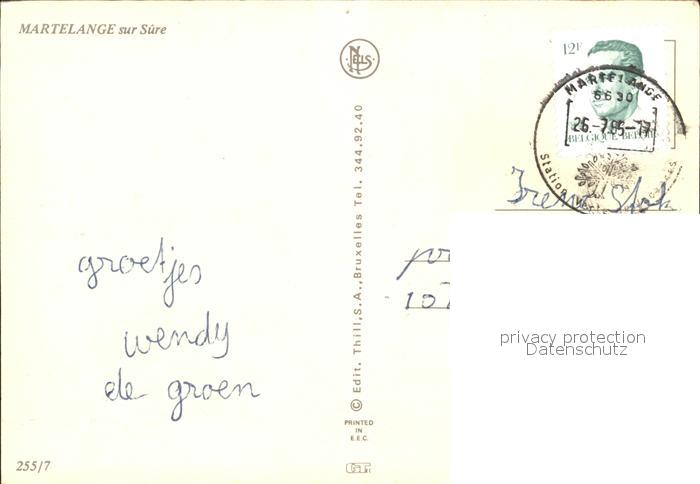 MARTELANGE sur Sûre
NELS
12F
BELGIQUE BELGIË
MARTELANGE
6630
26.-7.85-17
Station
groetjes
wendy
de groen
© Edit. Thill,S.A.,Bruxelles Tel. 344.92.40
PRINTED
IN
E.E.C.
privacy protection
Datenschutz
255/7